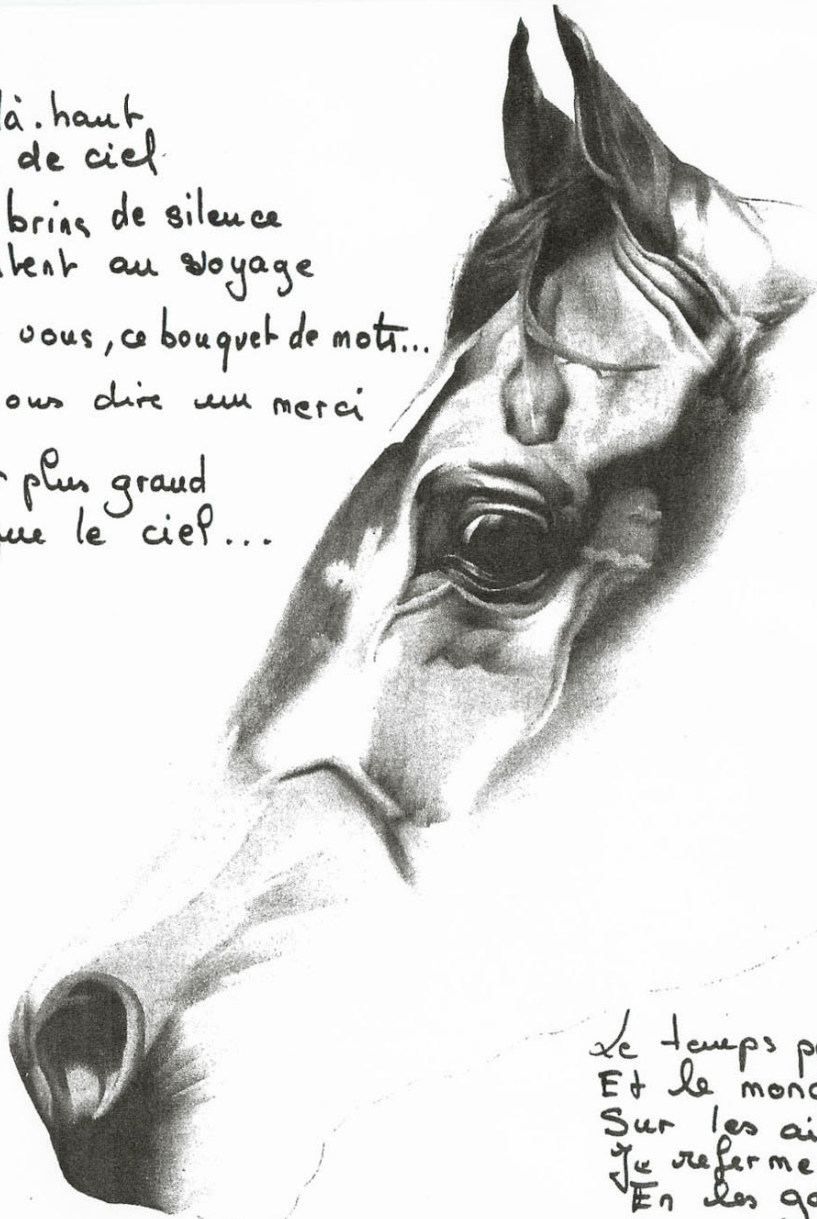 là.haut
de ciel
brins de silence
au voyage
vous, ce bouquet de mots...
dire un merci
plus grand
le ciel...
Le temps
Et le
Sur les
Je referme
En les